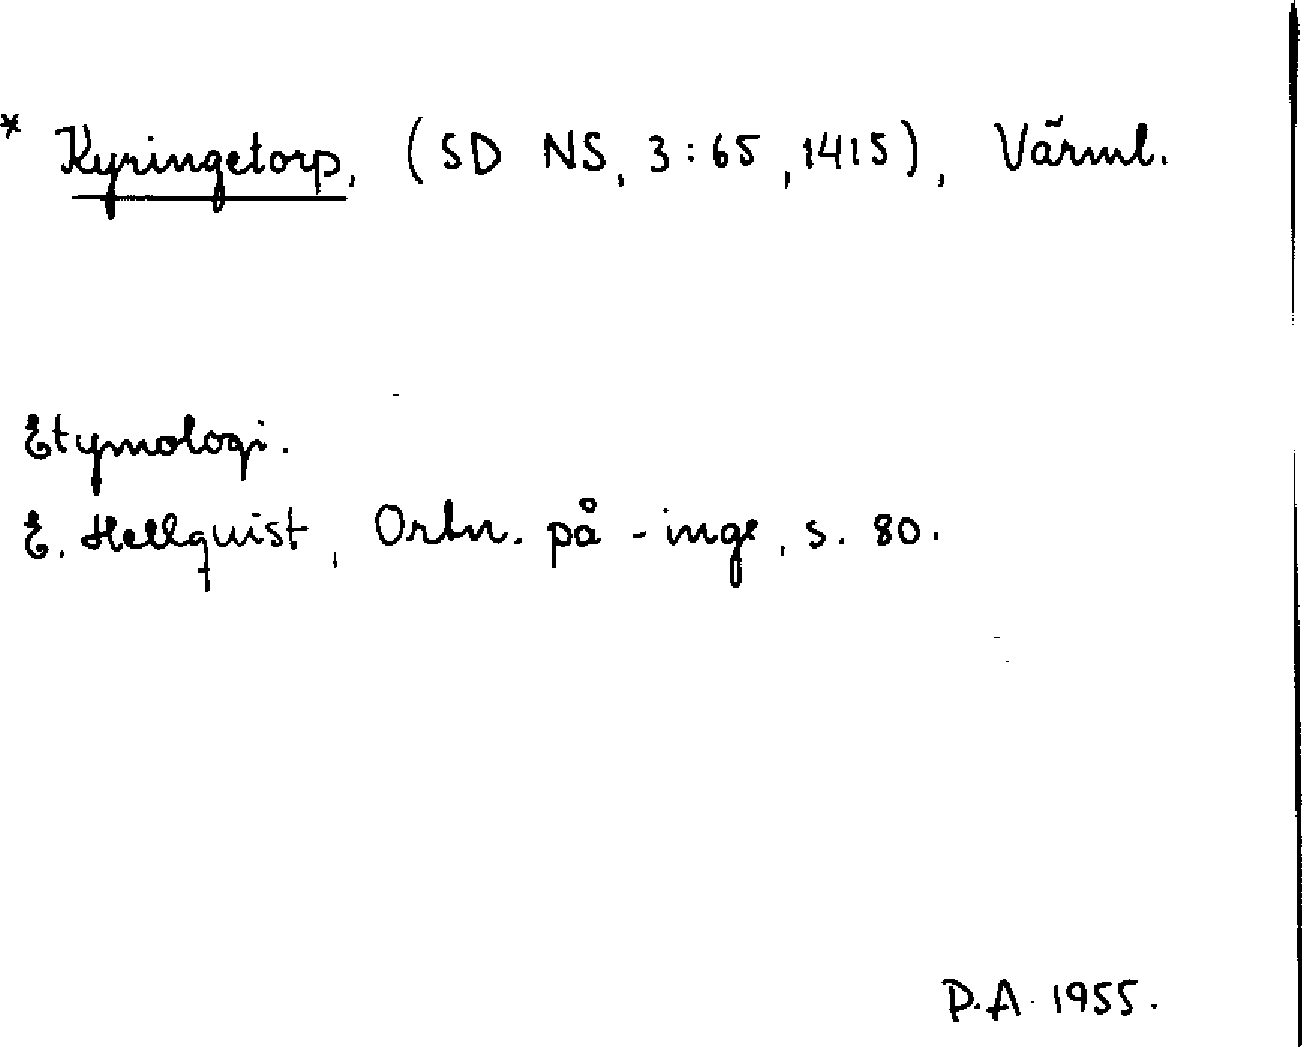 * Kyringetorp, (SD NS, 3:65, 1415), Värml.
Etymologi.
E. Hellquist, Ortn. på -inge, s. 80.
P.A. 1955.